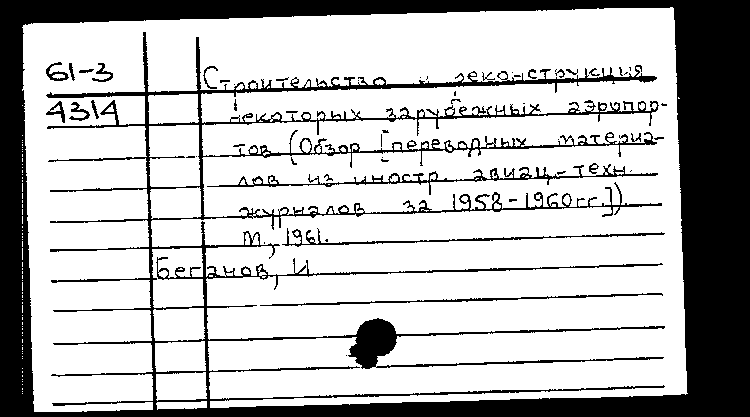 61-3
Строительство и реконструкция
4314
некоторых зарубежных аэропор-
тов (Обзор [переводных материа-
лов из иностр. авиац.-техн.
журналов за 1958-1960гг.])
М., 1961.
Беганов, И